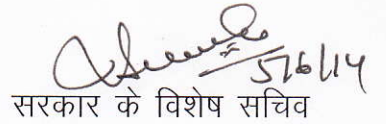 5/6/14
सरकार के विशेष सचिव